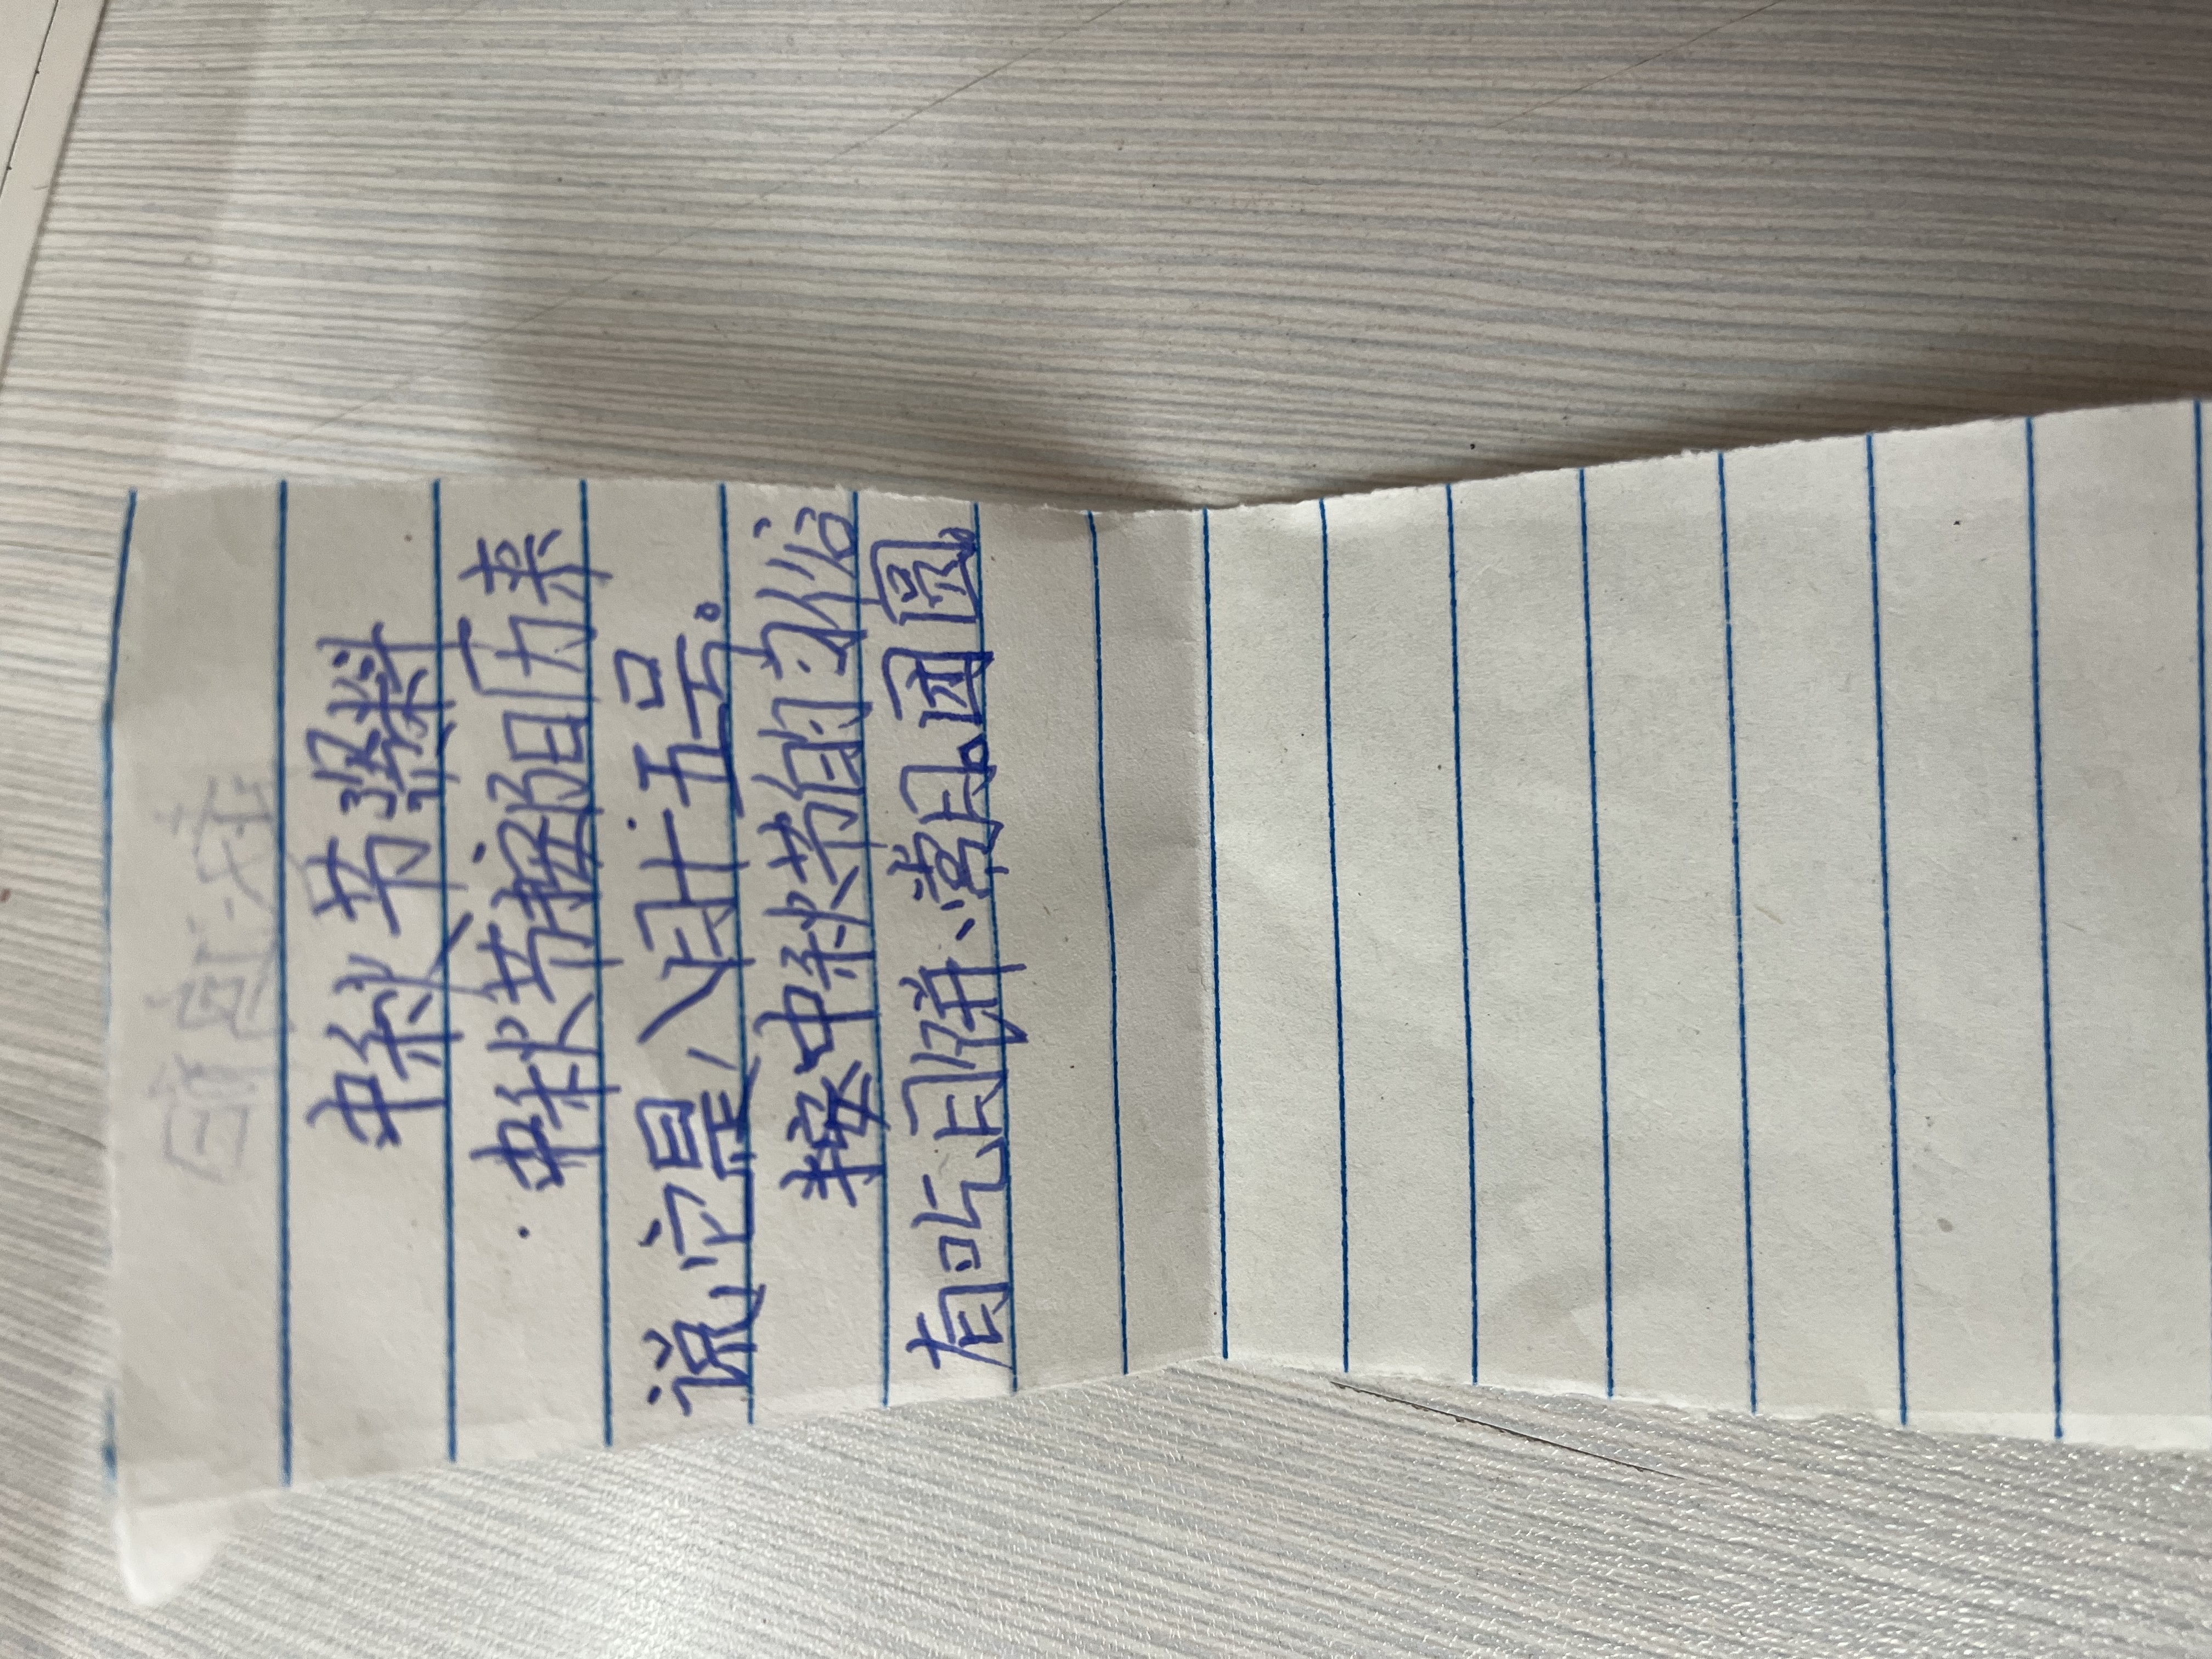 中秋节资料
中秋节按阳历来
说,它是八月十五号。
按中秋节的习俗
有吃月饼、赏月、团圆。